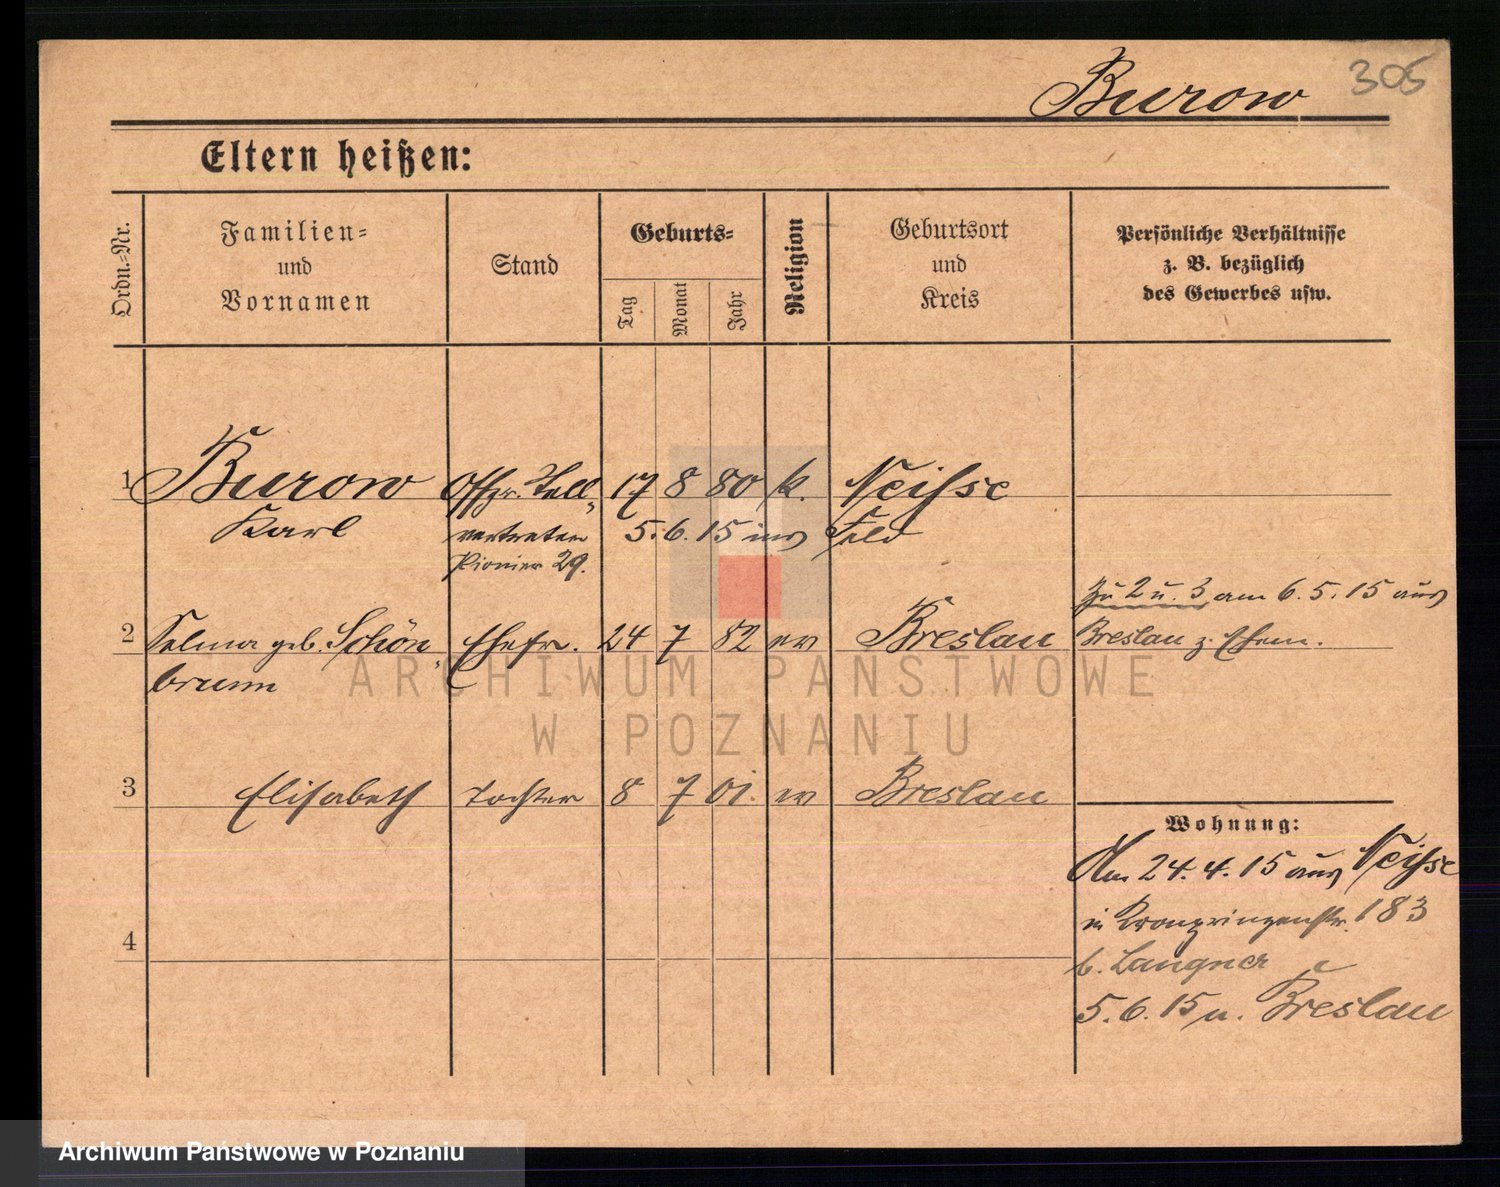 Burow
305
Eltern heißen:
Ordn.-Nr.
Familien-
und
Vornamen
Stand
Geburts-
Tag
Monat
Jahr
Religion
Geburtsort
und
Kreis
Persönliche Verhältnisse
z. B. bezüglich
des Gewerbes usw.
1 Burow Offzr. Stell- 17 8 80 k. Neisse
Karl vertreter 5.6.15 ins Feld
Pionier 29.
Zu 2 u. 3 am 6.5.15 aus
2 Selma geb. Schön- Ehefr. 24 7 82 ev Breslau Breslau z. Ehem.
brunn
ARCHIWUM PAŃSTWOWE
W POZNANIU
3 Elisabeth Tochter 8 7 01. ev Breslau
Wohnung:
Am 24.4.15 aus Neisse
in Kronprinzenstr. 183
4
b. Langner
5.6.15 n. Breslau
Archiwum Państwowe w Poznaniu